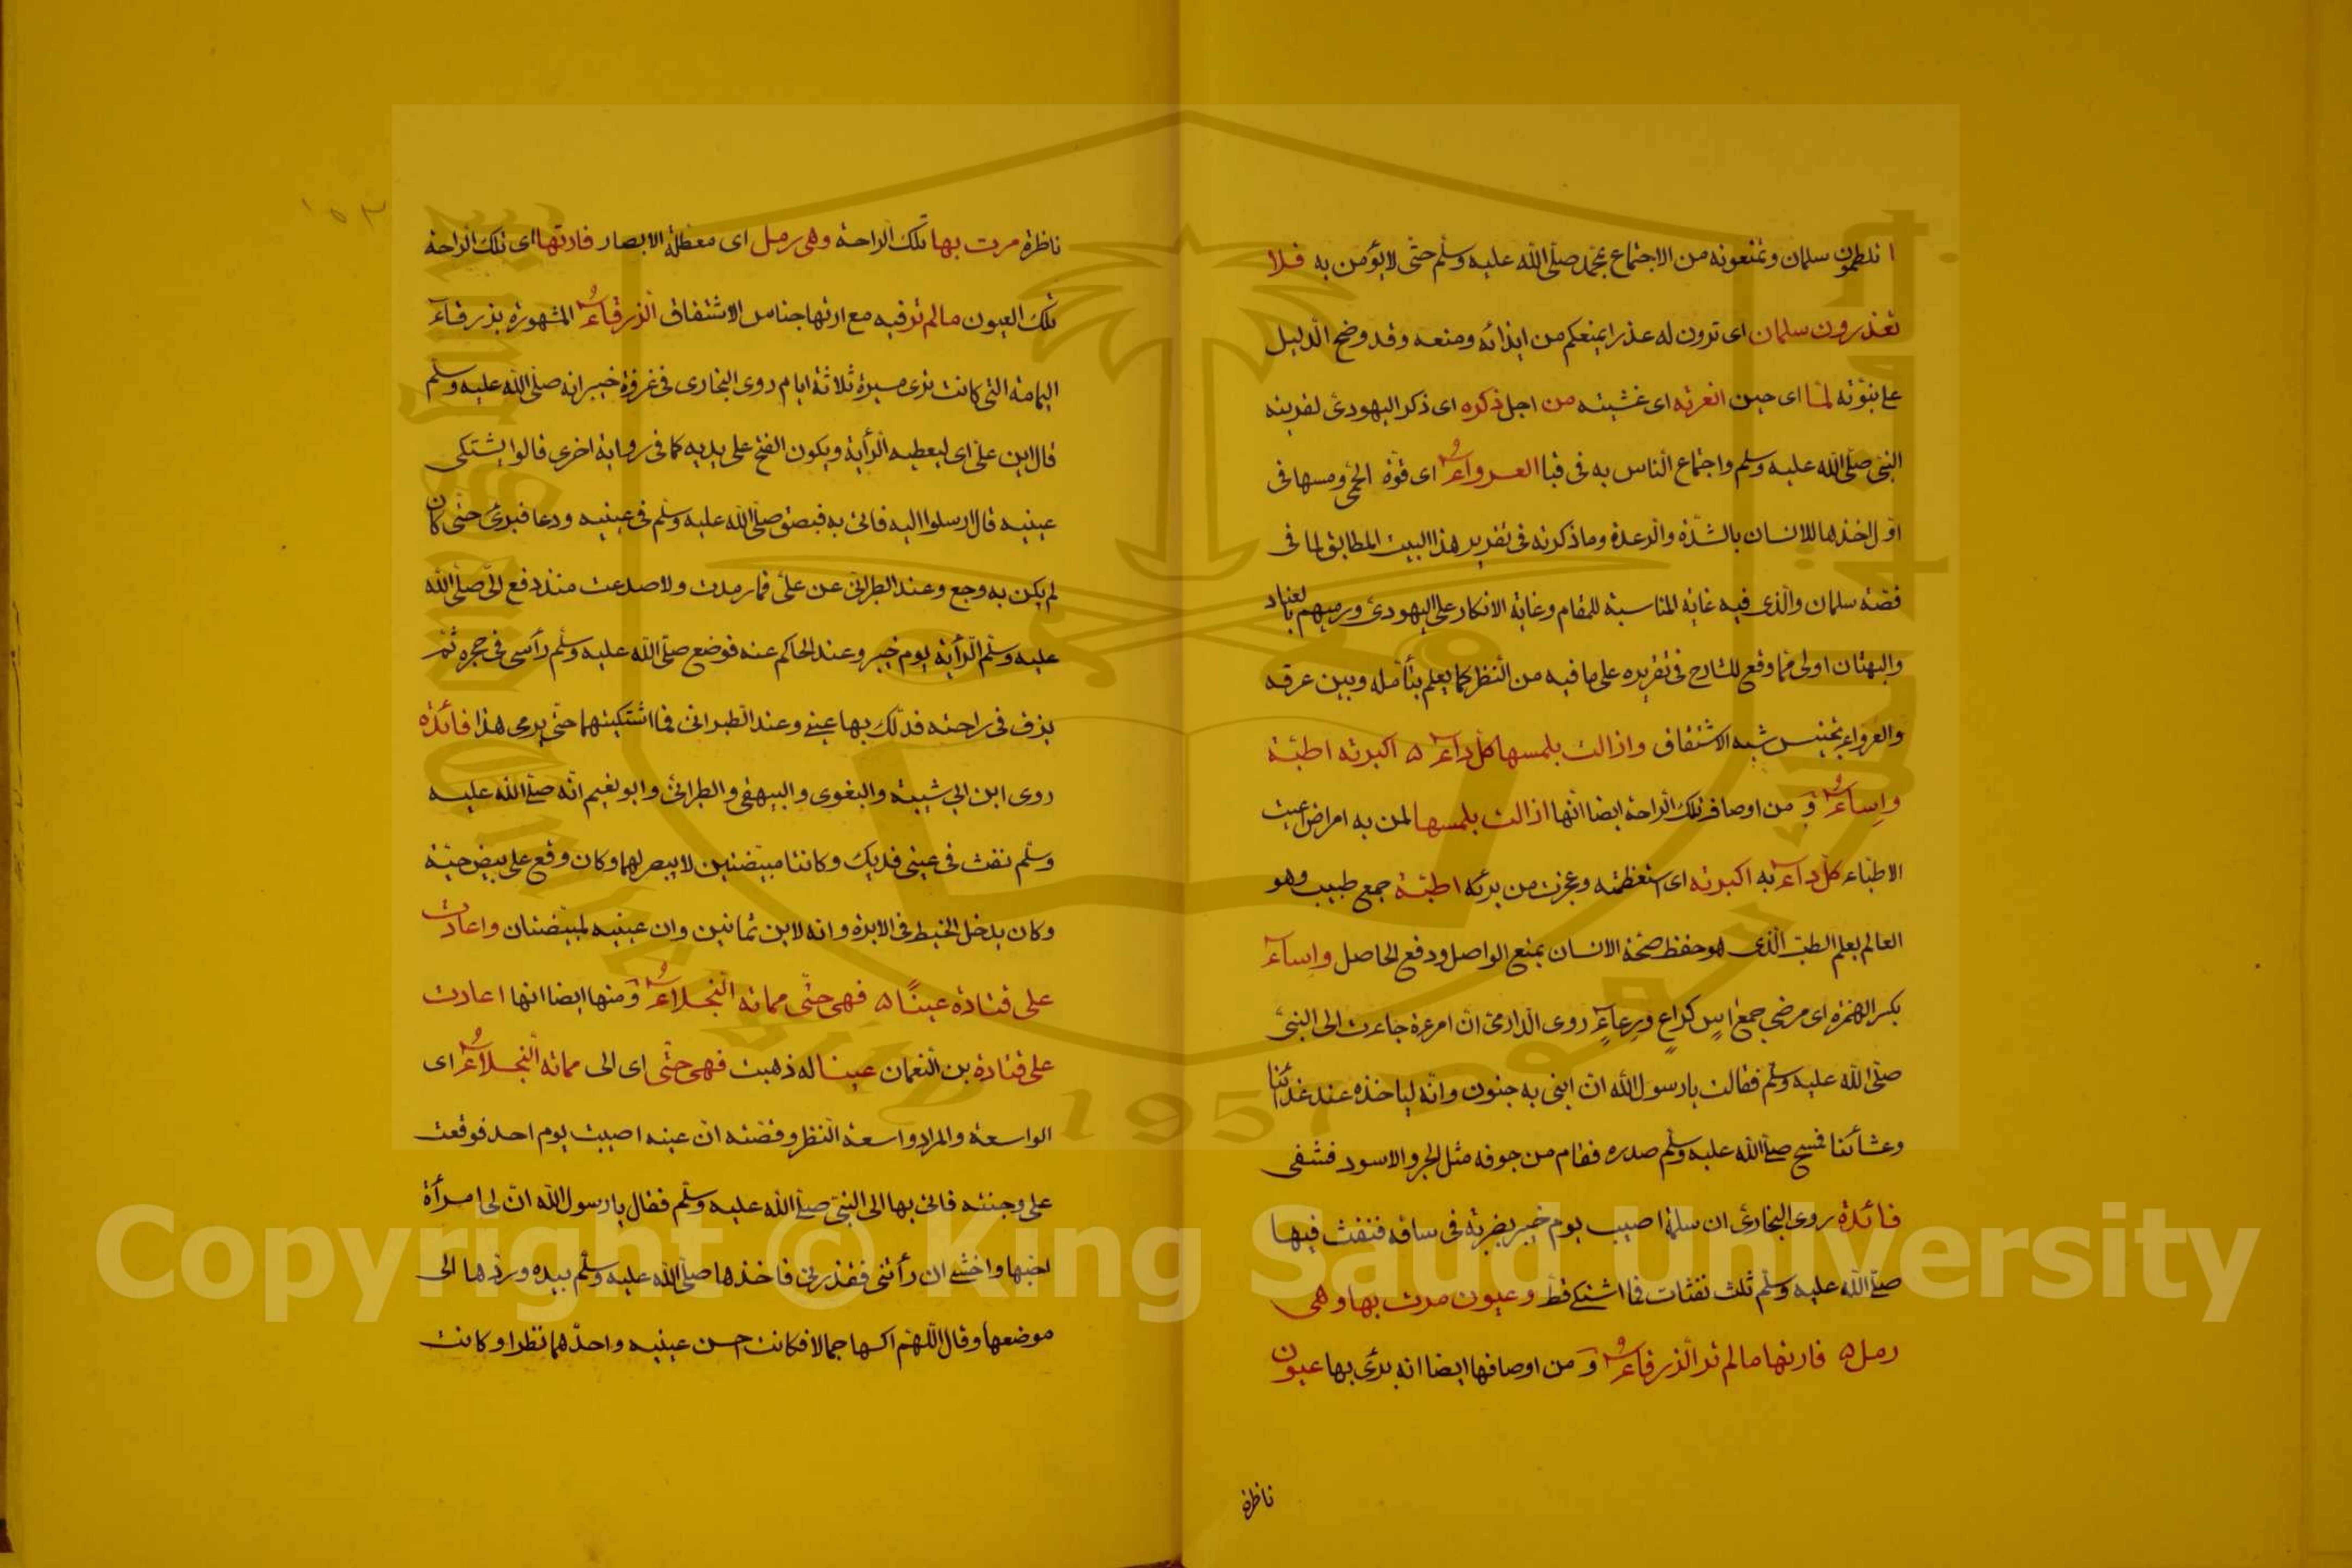 اتلطمون سلمان وتمنعونه من الاجتماع بمحمد صلى الله عليه وسلم حتى لا يؤمن به فلا
تعذرون سلمان اى ترون له عذرا يمنعكم من ايذائه ومنعه وقد وضح الدليل
على نبوته لما اى حين اعرته اى غشيته من اجل ذكره اى ذكر اليهودى لقرينه
النبى صلى الله عليه وسلم واجتماع الناس به فى قبا العرواء اى قوة الحمى ومسها فى
اول اخذها للانسان بالشدة والرعدة وما ذكرته فى تقرير هذا البيت المطابق لما فى
قصة سلمان والذى فيه غاية المناسبة للمقام وغاية الانكار على اليهودى ورميهم بالعناد
والبهتان اولى مما وقع للشارح فى تقريره على ما فيه من النظر كما يعلم بتأمله وبين عرقه
والعرواء تجنيس شبه الاشتقاق وازالت بلمسها كل داء ٥ اكبرته اطبة
واساء و من اوصاف تلك الراحة ايضا انها ازالت بلمسها لمن به امراض اعيت
الاطباء كل داء به اكبرته اى استعظمته وعجزت من برئه اطبة جمع طبيب وهو
العالم بعلم الطب الذى هو حفظ صحة الانسان بمنع الواصل ودفع الحاصل واساء
بكسر الهمزة اى مرضى جمع اس كراع ورعاء روى الدارمى ان امرءة جاءت الى النبى
صلى الله عليه وسلم فقالت يا رسول الله ان ابنى به جنون وانه لياخذه عند غدائنا
وعشائنا فمسح صلى الله عليه وسلم صدره فقام من جوفه مثل الجرو الاسود فشفى
فائدة روى البخارى ان سلمة اصيب يوم خيبر بضربة فى ساقه فنفث فيها
صلى الله عليه وسلم ثلث نفثات فما اشتكى قط وعيون مرت بها وهى
رمل ٥ فارتها ما لم تر الزرقاء و من اوصافها ايضا انه برئ بها عيون
ناظرة
١٥٢
ناظرة مرت بها تلك الراحة وهى رمل اى معظلة الابصار فارتها اى تلك الراحة
تلك العيون ما لم تر فيه مع ارتها جناس الاشتقاق الزرقاء المشهورة بزرقاء
اليمامة التى كانت ترى مسيرة ثلاثة ايام روى البخارى فى غزوة خيبر انه صلى الله عليه وسلم
قال اين على اى ليعطيه الرأية ويكون الفتح على يديه كما فى رواية اخرى قالوا يشتكى
عينيه قال ارسلوا اليه فاتى به فبصق صلى الله عليه وسلم فى عينيه ودعا فبرئ حتى كان
لم يكن به وجع وعند الطبرانى عن على فما رمدت ولا صدعت منذ دفع الى صلى الله
عليه وسلم الرأية يوم خيبر وعند الحاكم عنه فوضع صلى الله عليه وسلم رأسى فى حجره ثم
بزق فى راحته فدلك بها عينى وعند الطبرانى فما اشتكيتهما حتى يومى هذا فائدة
روى ابن ابى شيبة والبغوى والبيهقى والطبرانى وابو نعيم انه صلى الله عليه
وسلم نفث فى عينى فديك وكانتا مبيضتين لا يبصر بهما وكان وقع على بيض حية
وكان يدخل الخيط فى الابرة وانه لابن ثمانين وان عينيه لمبيضتان واعادت
على قتادة عينا ٥ فهى حتى مماته النجلاء و منها ايضا انها اعادت
على قتادة بن النعمان عينا له ذهبت فهى حتى اى الى مماته النجلاء اى
الواسعة والمراد واسعة النظر وقصته ان عينه اصيبت يوم احد فوقعت
على وجنته فاتى بها الى النبى صلى الله عليه وسلم فقال يا رسول الله ان لى امرأة
احبها واخشى ان رأتنى فقذرتنى فاخذها صلى الله عليه وسلم بيده وردها الى
موضعها وقال اللهم اكسها جمالا فكانت احسن عينيه واحدهما نظرا وكانت
Copyright © King Saud University
King Saud University
1957